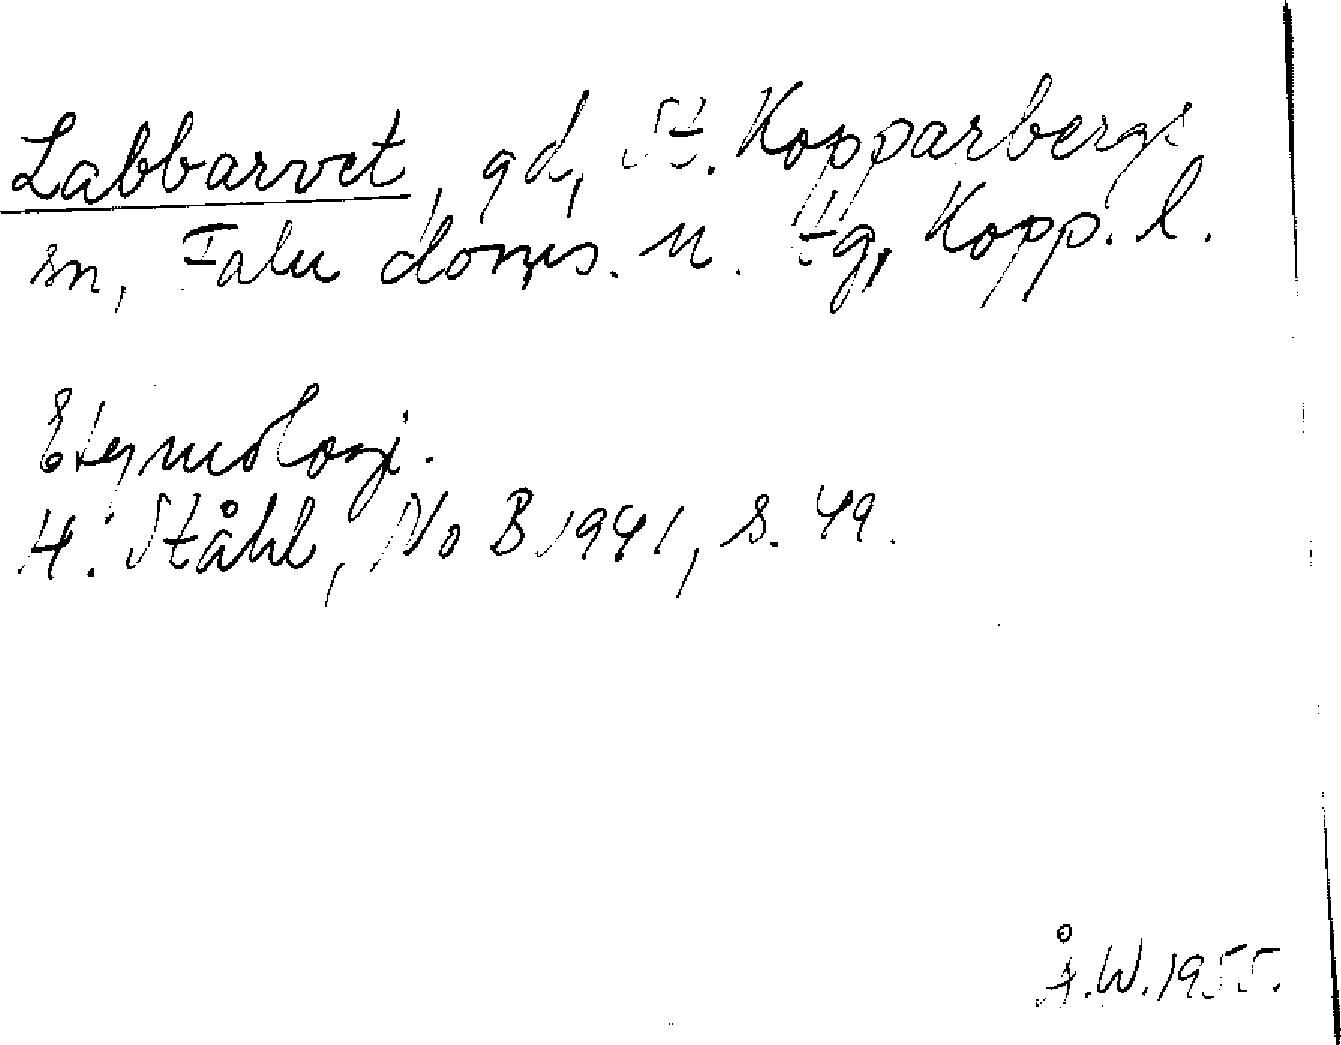 Labbarvet, gd, St. Kopparbergs
sn, Falu doms. n. tg, Kopp. l.
Etymologi.
H. Ståhl, No B 1941, s. 49.
Å.W. 1955.